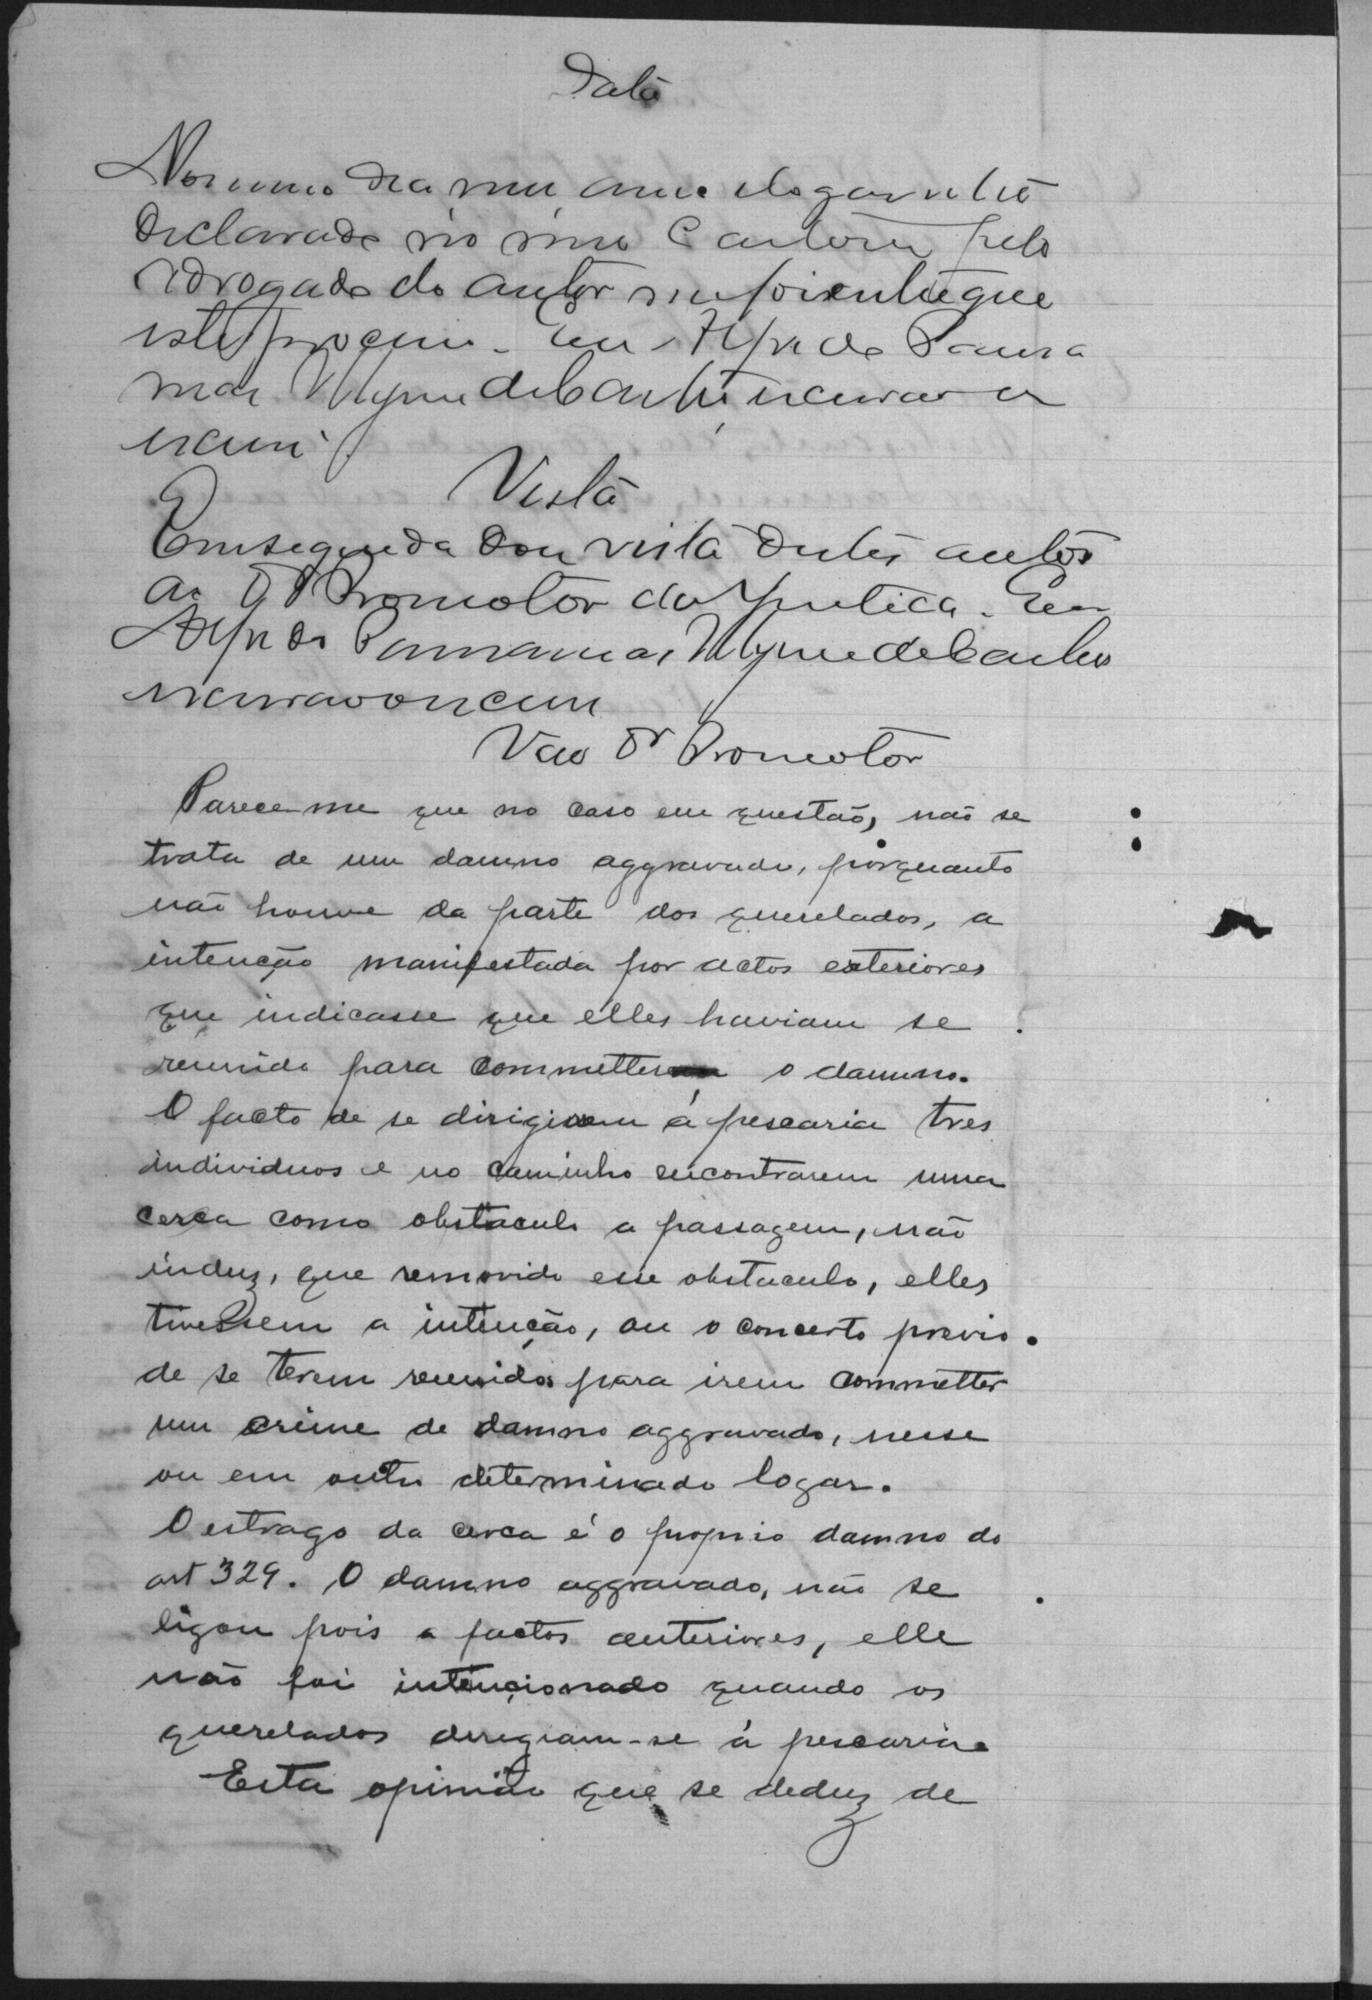 Data
No mesmo dia mez anno e logar retro
declarado no meu Cartorio pelo
advogado do autor me foi entregue
este processo. Eu Alfredo
escrevi
Vista
Em seguida dou vista destes autos
ao Dr Promotor da Justiça. Eu
Alfredo
escrivão o escrevi
V ao Dr Promotor
Parece-me que no caso em questão, não se
trata de um damno aggravado, porquanto
não houve da parte dos querelados, a
intenção manifestada por actos exteriores
que indicasse que elles haviam se
reunido para commetter o damno.
O facto de se dirigirem á pescaria tres
individuos e no caminho encontrarem uma
cerca como obstaculo a passagem, não
induz, que removido esse obstaculo, elles
tivessem a intenção, ou o concerto previo
de se terem reunido para irem commetter
um crime de damno aggravado, nesse
ou em outro determinado logar.
O estrago da cerca é o proprio damno do
art 329. O damno aggravado, não se
ligou pois a factos anteriores, elle
não foi intencionado quando os
querelados dirigiam-se á pescaria.
Esta opinião que se deduz de